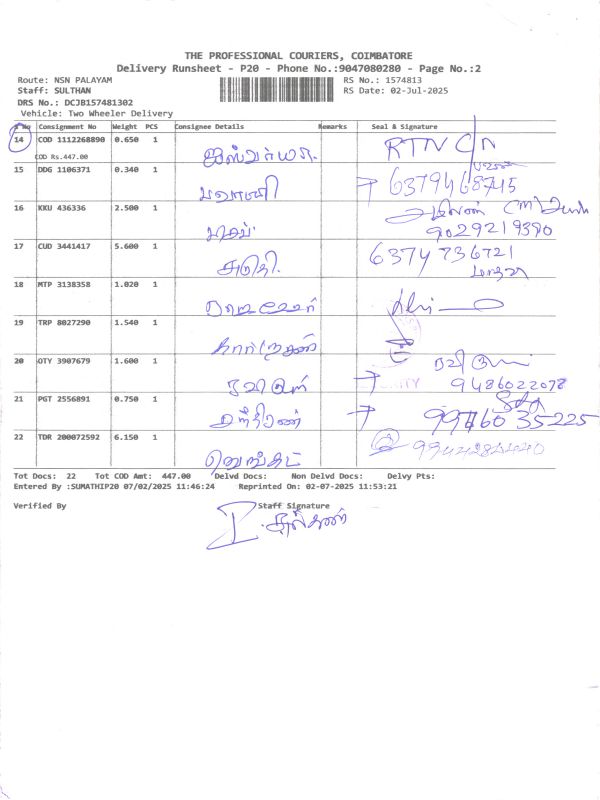 THE PROFESSIONAL COURIERS, COIMBATORE
Delivery Runsheet - P20 - Phone No.:9047080280 - Page No.:2
Route: NSN PALAYAM RS No.: 1574813
Staff: SULTHAN RS Date: 02-Jul-2025
DRS No.: DCJB157481302
Vehicle: Two Wheeler Delivery
S No Consignment No Weight PCS Consignee Details Remarks Seal & Signature
14 COD 1112268890 0.650 1 RTN C/N
COD Rs.447.00
15 DDG 1106371 0.340 1 பவானி 6379468745
16 KKU 436336 2.500 1 9029219390
17 CUD 3441417 5.600 1 6374736721
18 MTP 3138358 1.020 1
19 TRP 8027290 1.540 1
20 OTY 3907679 1.600 1 9486022078
21 PGT 2556891 0.750 1 9976035225
22 TDR 200072592 6.150 1 வெங்கட்
Tot Docs: 22 Tot COD Amt: 447.00 Delvd Docs: Non Delvd Docs: Delvy Pts:
Entered By :SUMATHIP20 07/02/2025 11:46:24 Reprinted On: 02-07-2025 11:53:21
Verified By Staff Signature